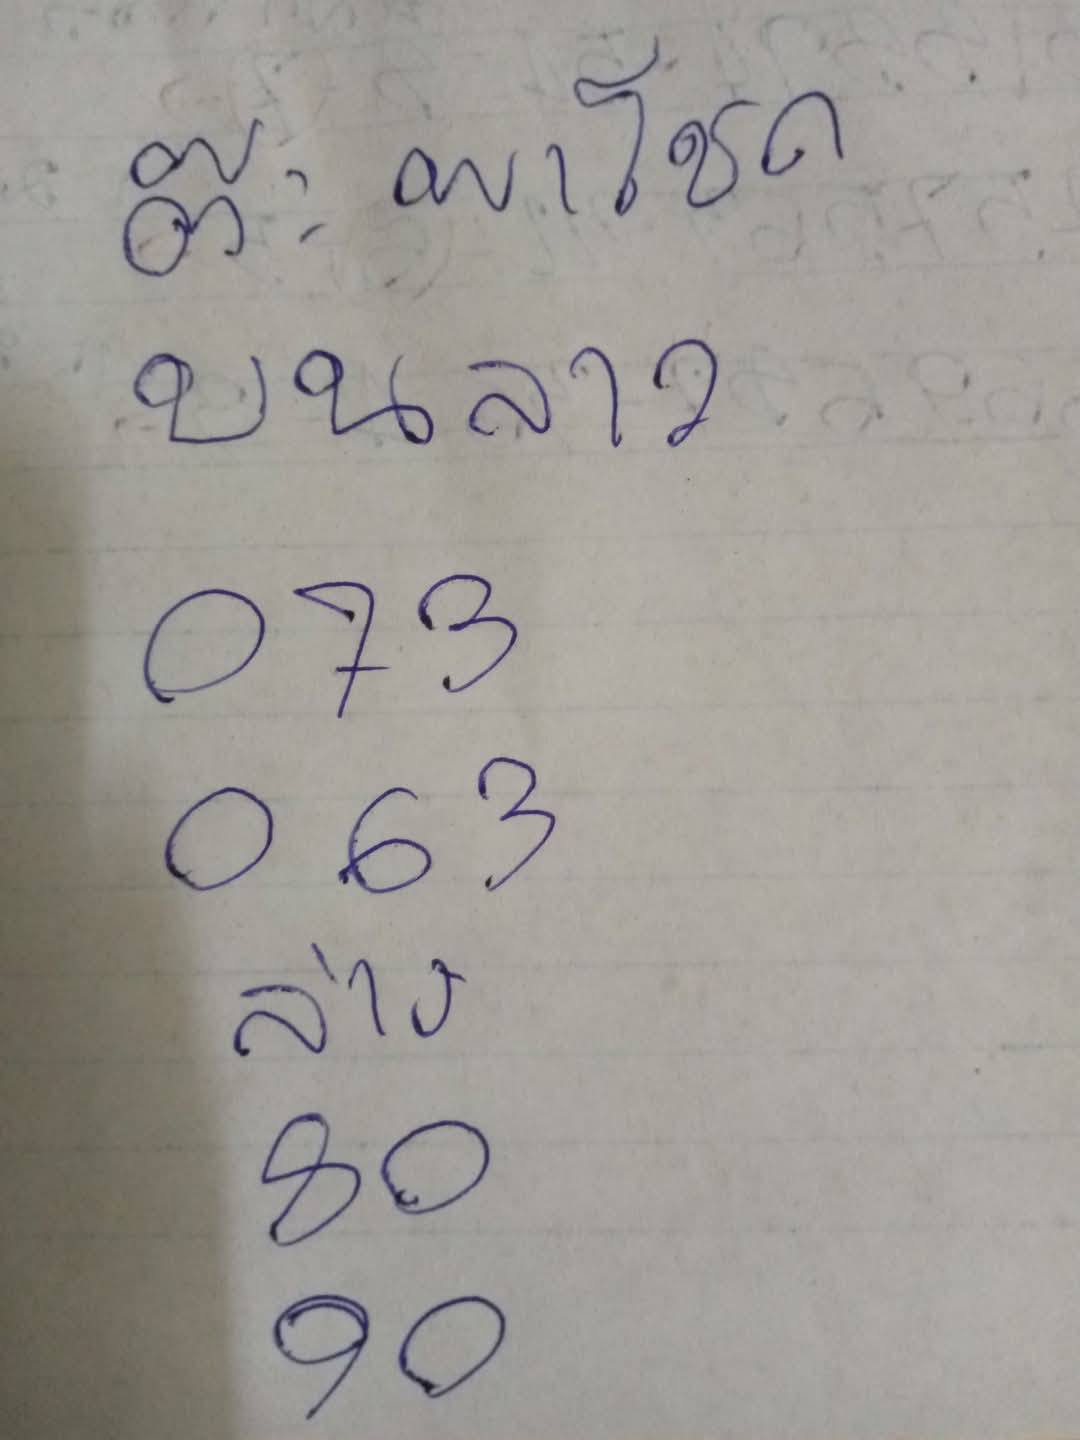 ต๊ะ พาโชค
บนลาว
073
063
ล่าง
80
90